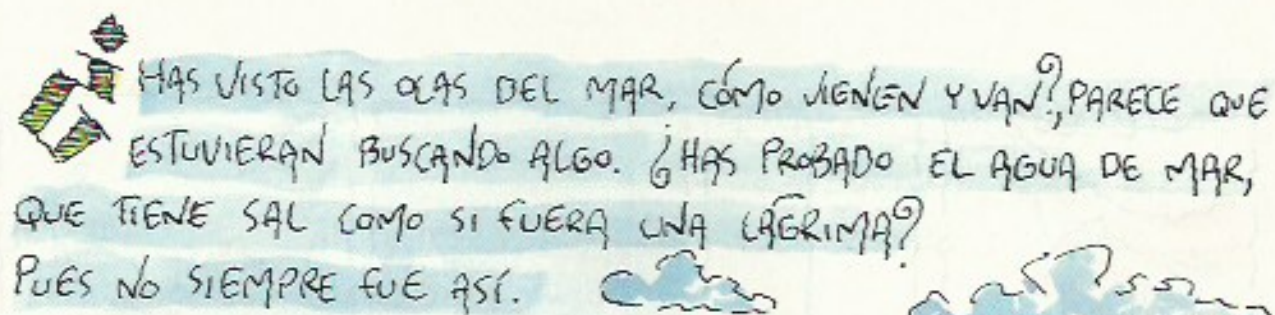 ¿HAS VISTO LAS OLAS DEL MAR, CÓMO VIENEN Y VAN?, PARECE QUE
ESTUVIERAN BUSCANDO ALGO. ¿HAS PROBADO EL AGUA DE MAR,
QUE TIENE SAL COMO SI FUERA UNA LÁGRIMA?
PUES NO SIEMPRE FUE ASÍ.